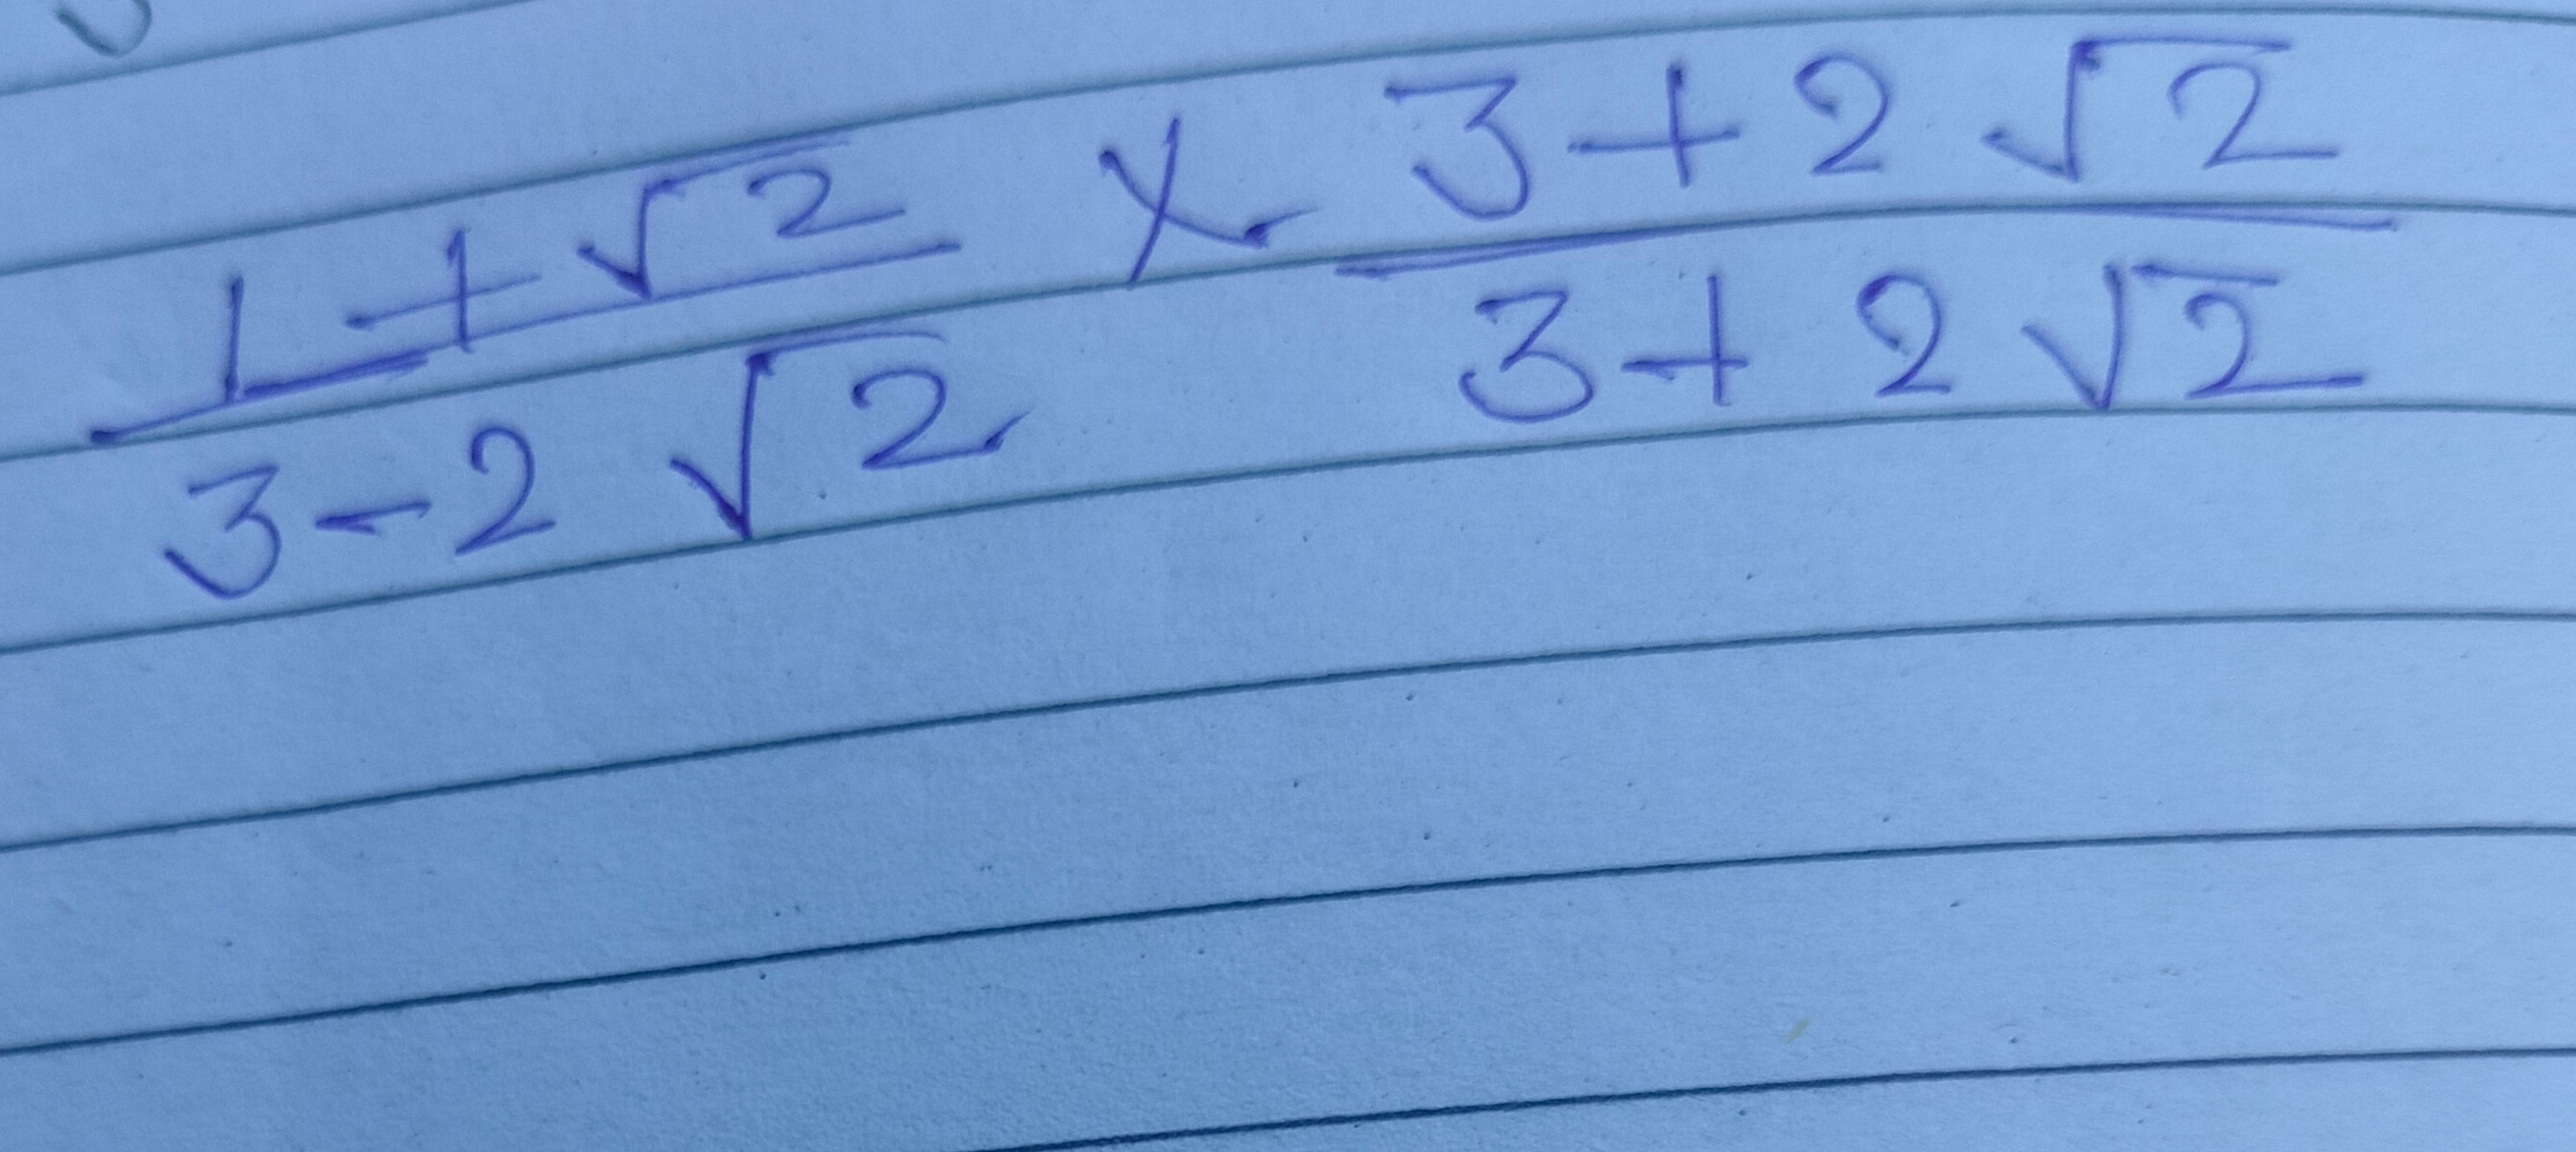 (1+√2)/(3-2√2) × (3+2√2)/(3+2√2)